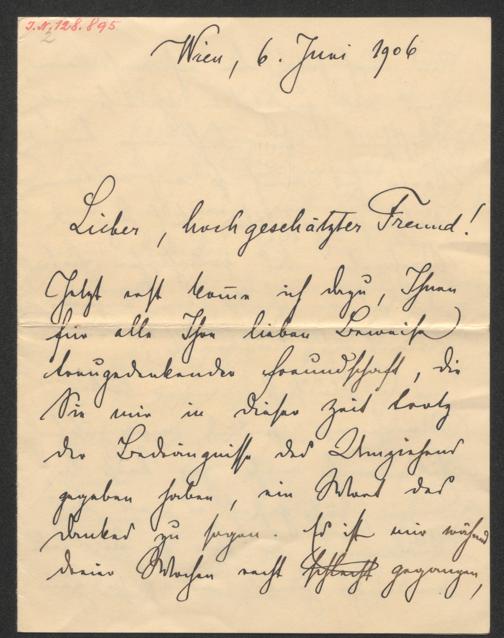 J.N. 128.895
2
Wien, 6. Juni 1906
Lieber, hochgeschätzter Freund!
Jetzt erst komme ich dazu, Ihnen
für alle Ihre lieben Beweise
treugedenkender Freundschaft, die
Sie mir in dieser Zeit trotz
der Bedrängnisse des Umziehens
gegeben haben, ein Wort des
Dankes zu sagen. Es ist mir während
dreier Wochen recht schlecht gegangen,